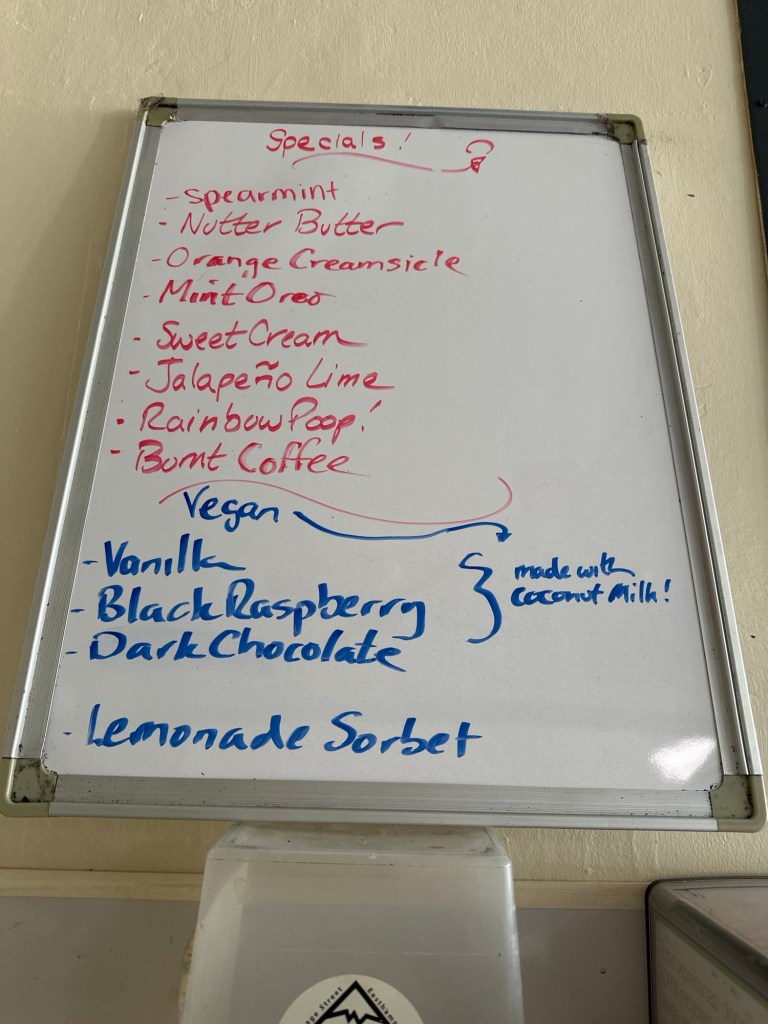 Specials!
- Spearmint
- Nutter Butter
- Orange Creamsicle
- Mint Oreo
- Sweet Cream
- Jalapeño Lime
- Rainbow Poop!
- Burnt Coffee
Vegan
- Vanilla
- Black Raspberry
- Dark Chocolate
made with
coconut Milk!
- Lemonade Sorbet
Street